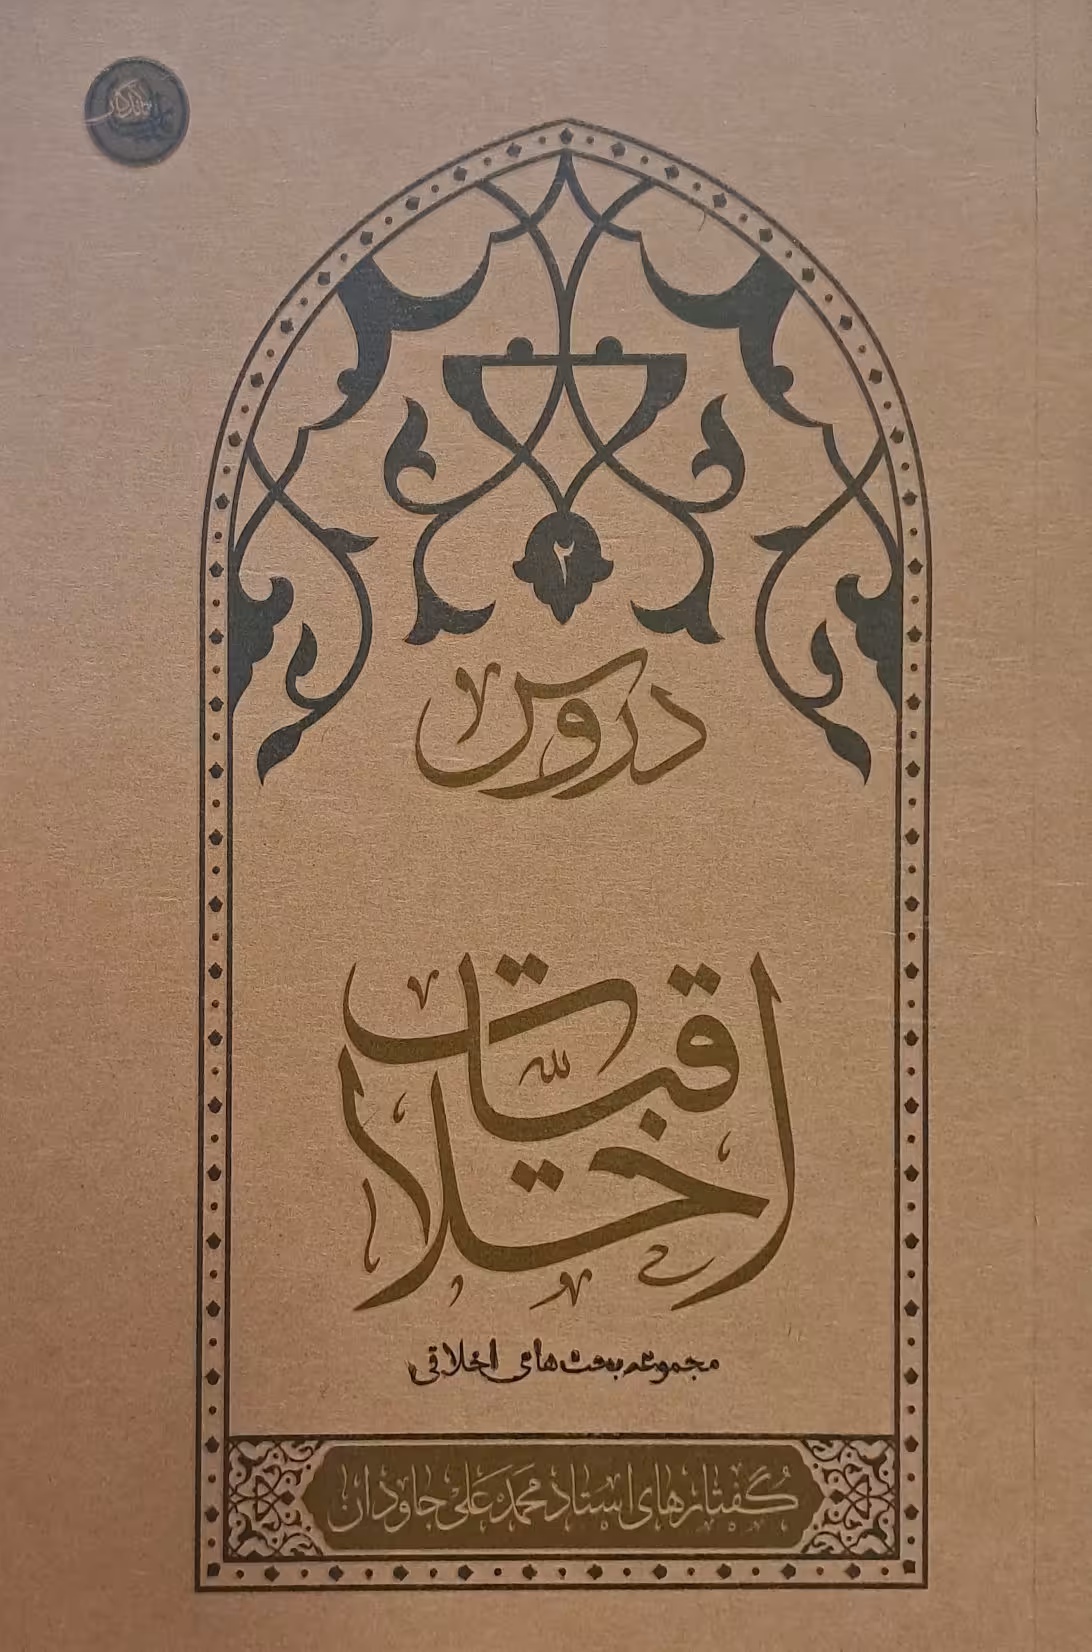 ۲
دروس
اخلاقیات
مجموعه بحث های اخلاقی
گفتارهای استاد محمد علی جاودان